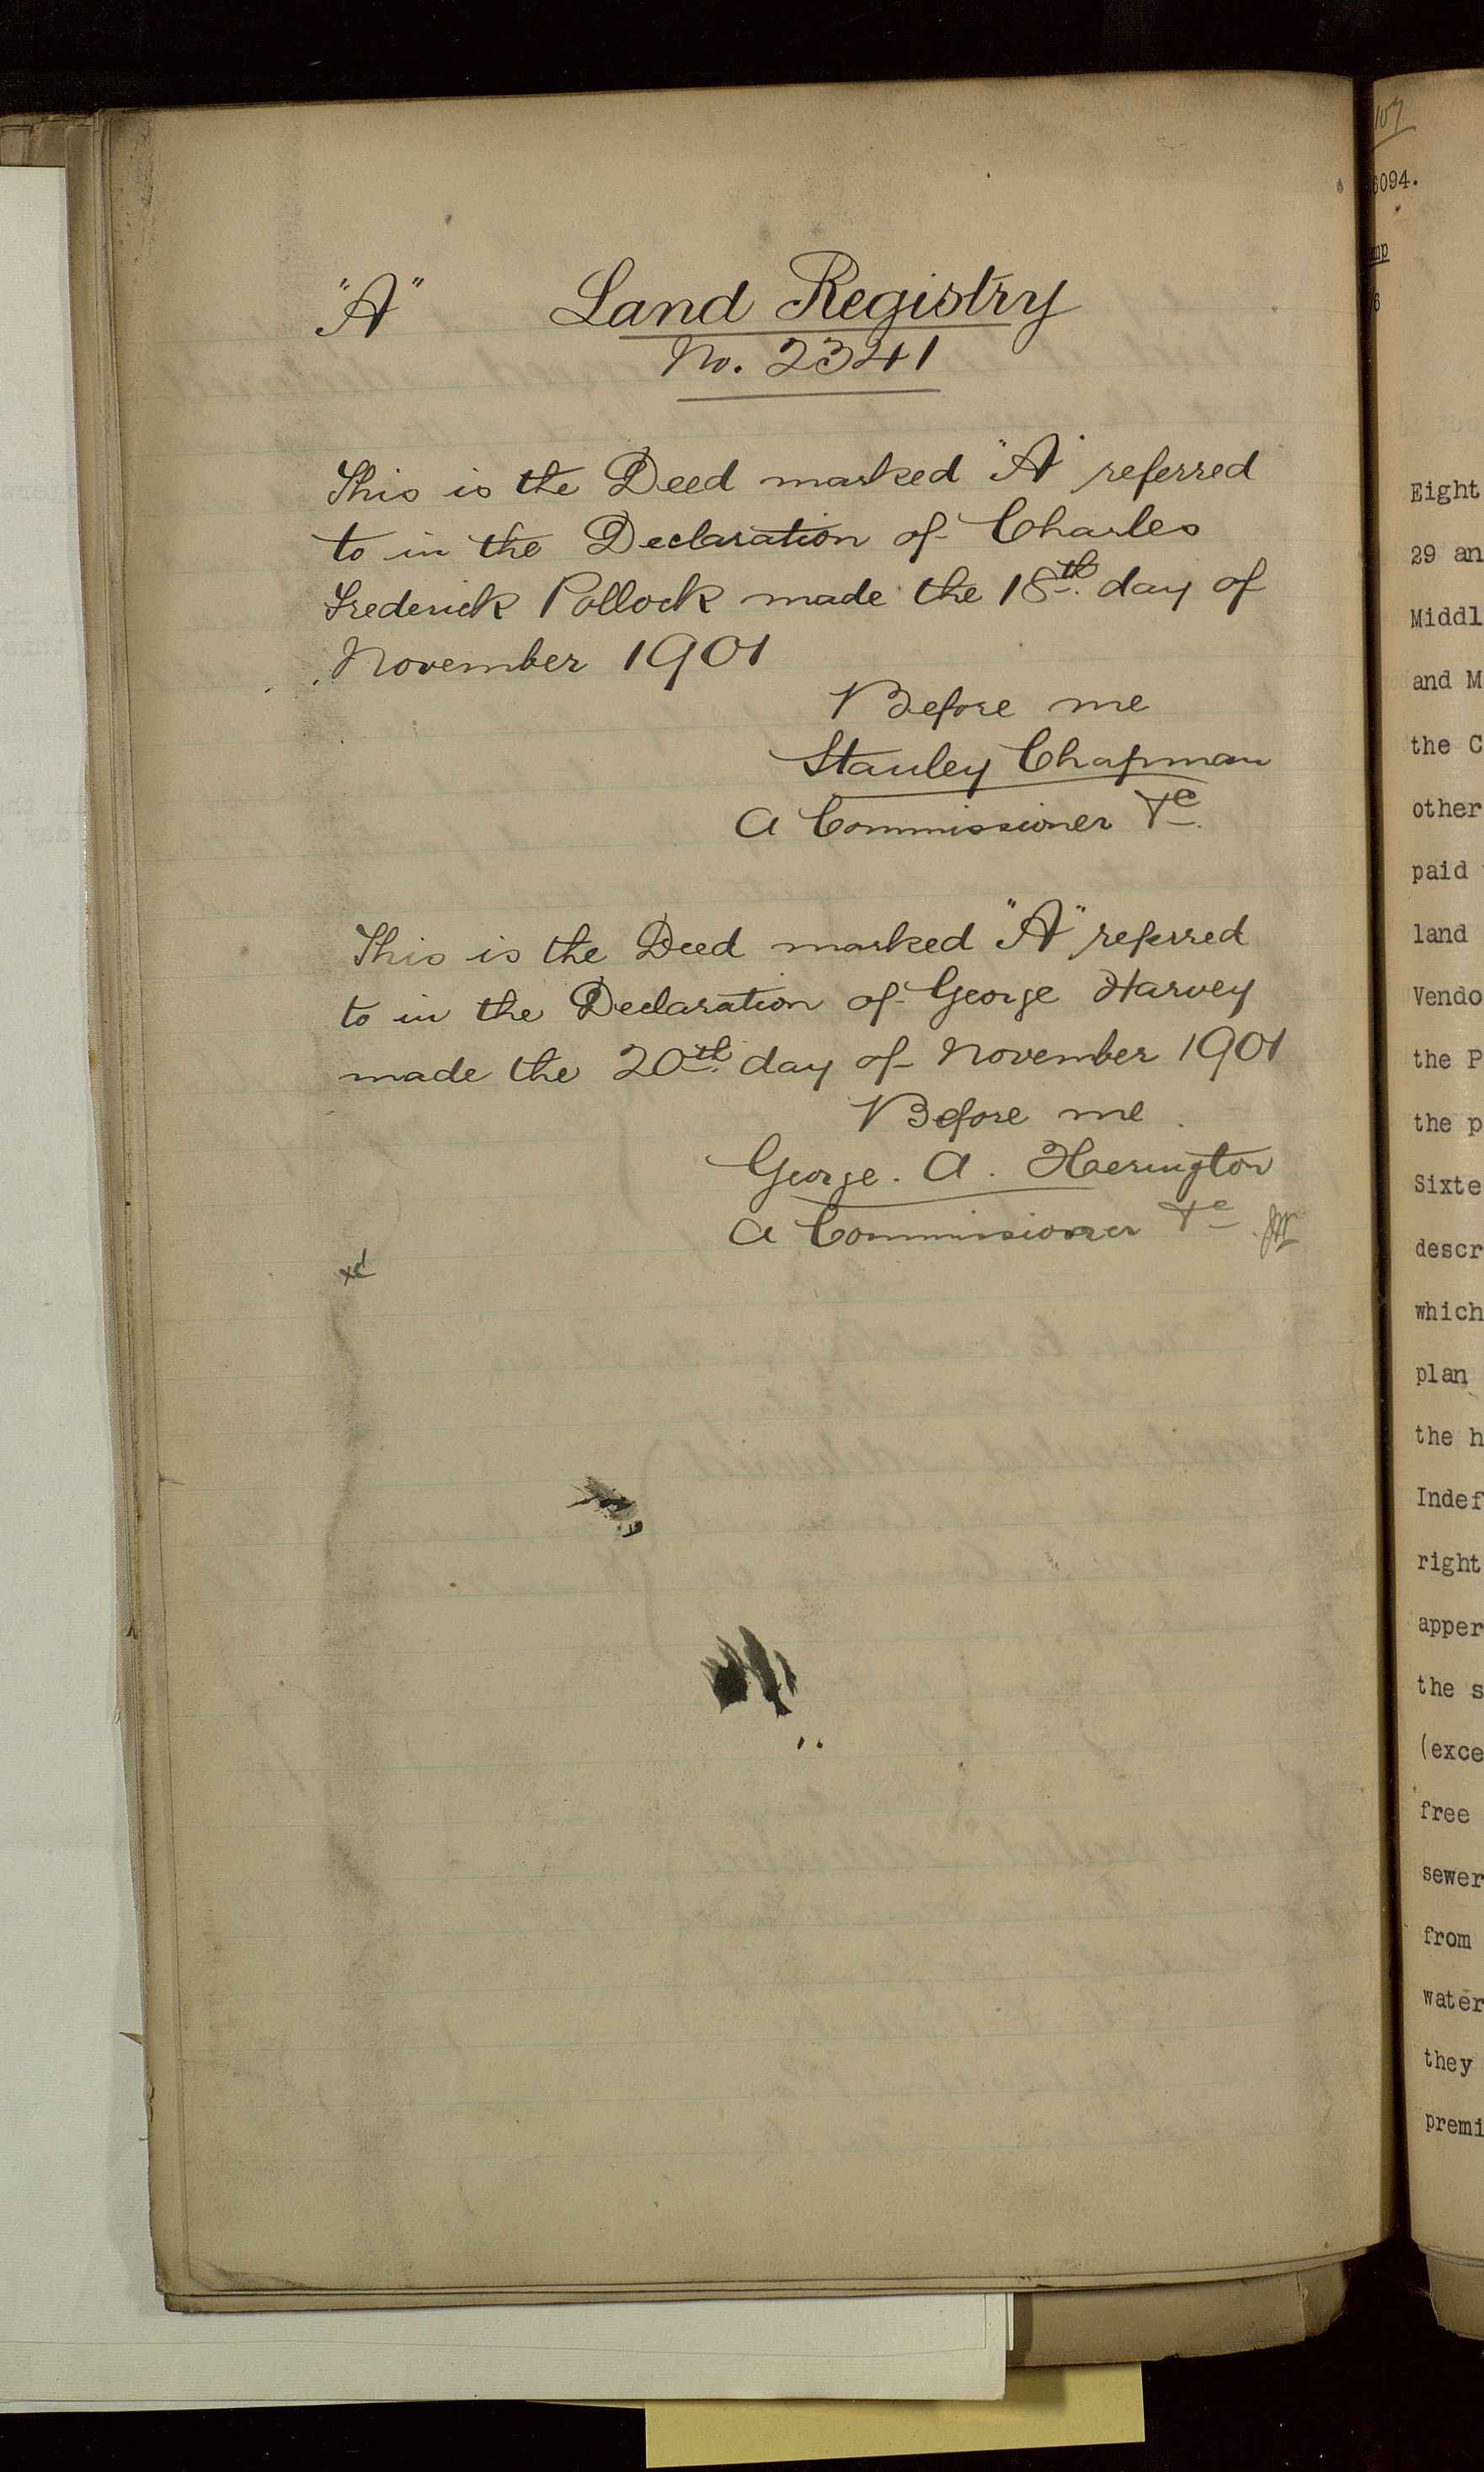 "A" Land Registry
No. 2341
This is the Deed marked "A" referred
to in the Declaration of Charles
Frederick Pollock made the 18th day of
November 1901
Before me
Stanley Chapman
A Commissioner &c.
This is the Deed marked "A" referred
to in the Declaration of George Harvey
made the 20th day of November 1901
Before me
George. A. Herington
A Commissioner &c
xd
107
6094.
mp
6
Eight
29 an
Middl
and M
the C
other
paid
land
Vendo
the P
the p
Sixte
descr
which
plan
the h
Indef
right
apper
the s
(exce
free
sewer
from
water
they
premi